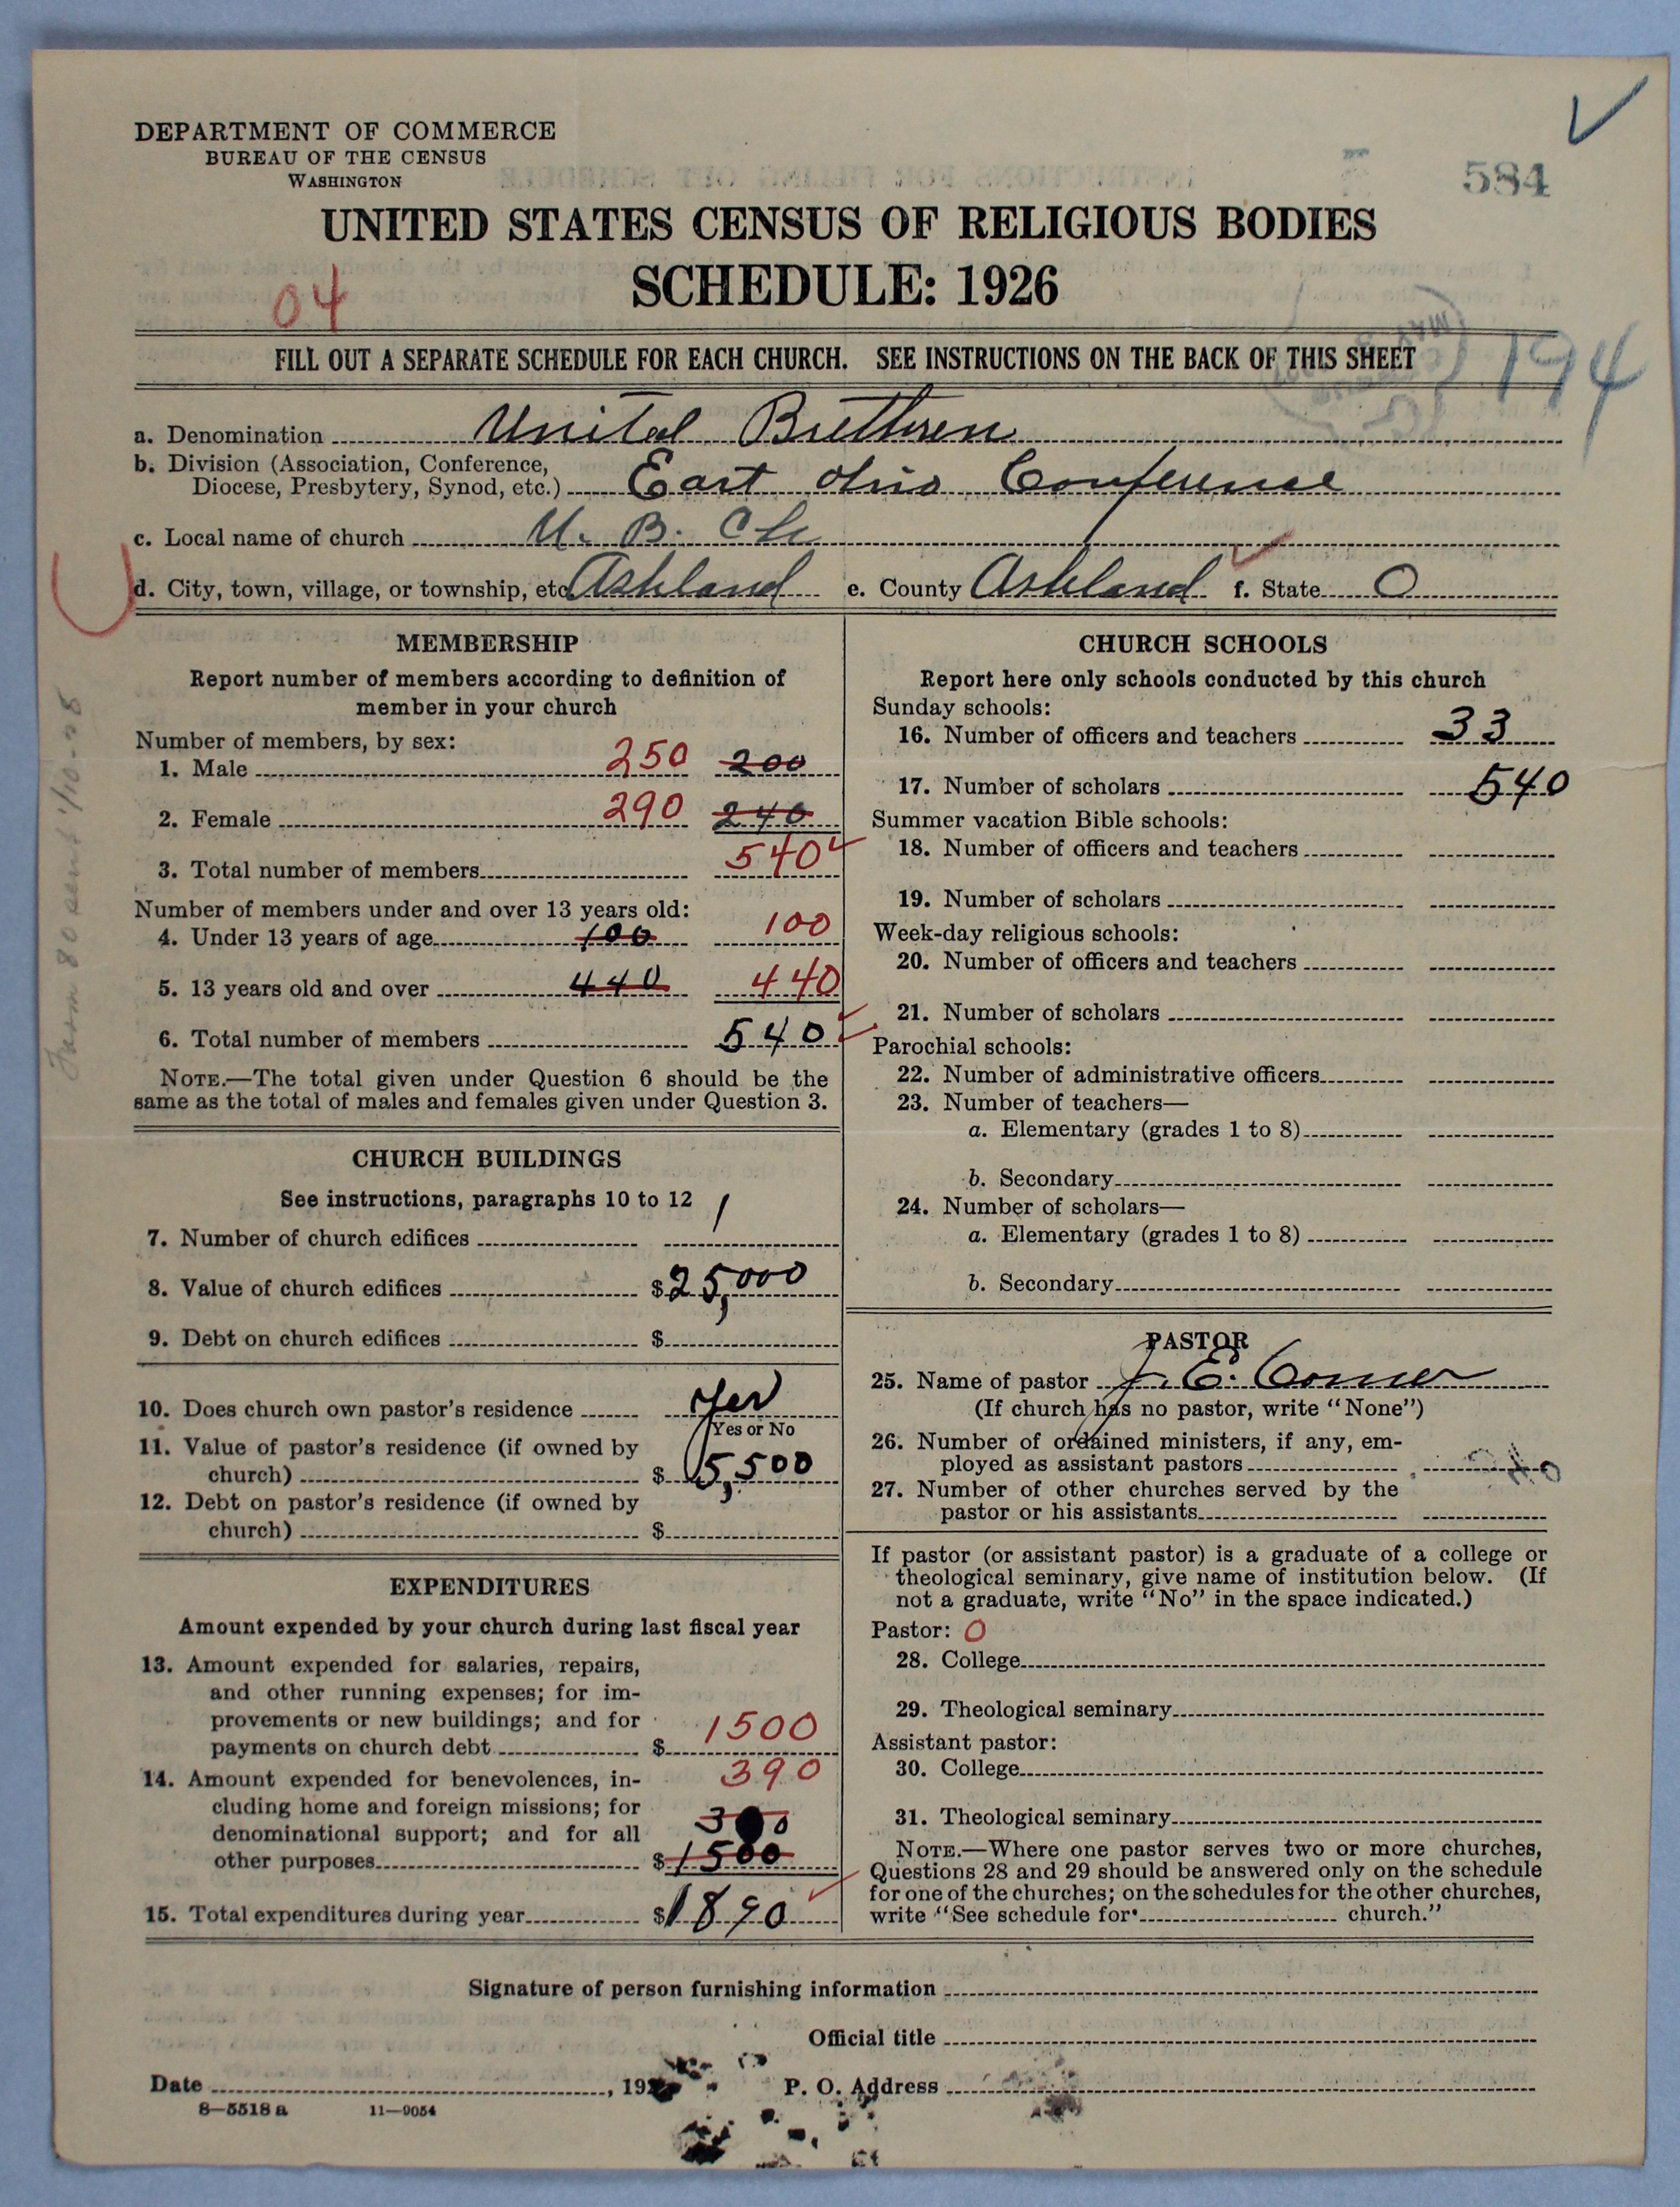 DEPARTMENT OF COMMERCE
BUREAU OF THE CENSUS
WASHINGTON
584
UNITED STATES CENSUS OF RELIGIOUS BODIES
SCHEDULE: 1926
04
FILL OUT A SEPARATE SCHEDULE FOR EACH CHURCH. SEE INSTRUCTIONS ON THE BACK OF THIS SHEET
194
a. Denomination United Brethren
b. Division (Association, Conference,
Diocese, Presbytery, Synod, etc.) East Ohio Conference
c. Local name of church U. B. Ch
d. City, town, village, or township, etc. Ashland e. County Ashland f. State O
MEMBERSHIP
Report number of members according to definition of
member in your church
Number of members, by sex:
1. Male 250 200
2. Female 290 240
3. Total number of members 540
Number of members under and over 13 years old:
4. Under 13 years of age 100 100
5. 13 years old and over 440 440
6. Total number of members 540
NOTE.—The total given under Question 6 should be the
same as the total of males and females given under Question 3.
CHURCH BUILDINGS
See instructions, paragraphs 10 to 12
7. Number of church edifices 1
8. Value of church edifices $25,000
9. Debt on church edifices $
10. Does church own pastor's residence Yes
Yes or No
11. Value of pastor's residence (if owned by
church) $5,500
12. Debt on pastor's residence (if owned by
church) $
EXPENDITURES
Amount expended by your church during last fiscal year
13. Amount expended for salaries, repairs,
and other running expenses; for im-
provements or new buildings; and for
payments on church debt $1500
14. Amount expended for benevolences, in- 390
cluding home and foreign missions; for
denominational support; and for all
other purposes $1500
15. Total expenditures during year $1890
CHURCH SCHOOLS
Report here only schools conducted by this church
Sunday schools:
16. Number of officers and teachers 33
17. Number of scholars 540
Summer vacation Bible schools:
18. Number of officers and teachers
19. Number of scholars
Week-day religious schools:
20. Number of officers and teachers
21. Number of scholars
Parochial schools:
22. Number of administrative officers
23. Number of teachers—
a. Elementary (grades 1 to 8)
b. Secondary
24. Number of scholars—
a. Elementary (grades 1 to 8)
b. Secondary
PASTOR
25. Name of pastor J. E. Comer
(If church has no pastor, write "None")
26. Number of ordained ministers, if any, em-
ployed as assistant pastors
27. Number of other churches served by the
pastor or his assistants
If pastor (or assistant pastor) is a graduate of a college or
theological seminary, give name of institution below. (If
not a graduate, write "No" in the space indicated.)
Pastor: O
28. College
29. Theological seminary
Assistant pastor:
30. College
31. Theological seminary
NOTE.—Where one pastor serves two or more churches,
Questions 28 and 29 should be answered only on the schedule
for one of the churches; on the schedules for the other churches,
write "See schedule for church."
Signature of person furnishing information
Official title
Date , 192 P. O. Address
8—5518 a 11—9054